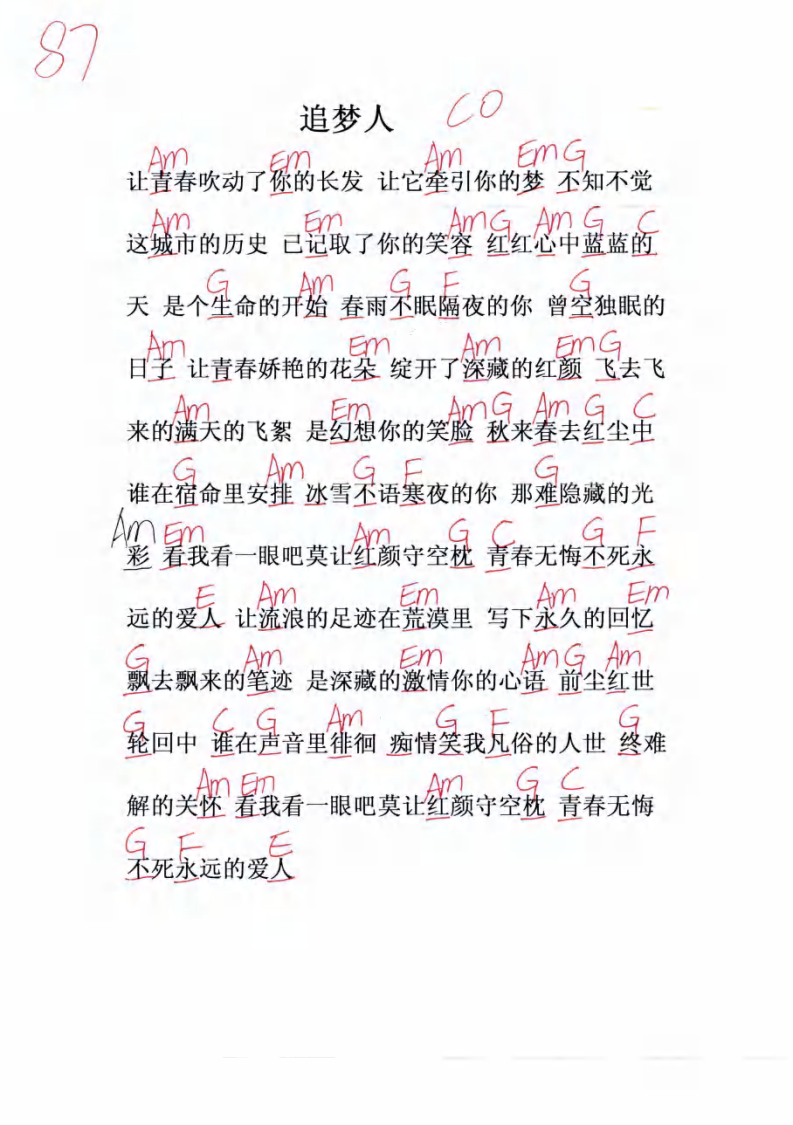 87
追梦人 CO
Am Em Am Em G
让青春吹动了你的长发 让它牵引你的梦 不知不觉
Am Em Am G Am G C
这城市的历史 已记取了你的笑容 红红心中蓝蓝的
G Am G F G
天 是个生命的开始 春雨不眠隔夜的你 曾空独眠的
Am Em Am Em G
日子 让青春娇艳的花朵 绽开了深藏的红颜 飞去飞
Am Em Am G Am G C
来的满天的飞絮 是幻想你的笑脸 秋来春去红尘中
G Am G F G
谁在宿命里安排 冰雪不语寒夜的你 那难隐藏的光
Am Em Am G C G F
彩 看我看一眼吧莫让红颜守空枕 青春无悔不死永
E Am Em Am Em
远的爱人 让流浪的足迹在荒漠里 写下永久的回忆
G Am Em Am G Am
飘去飘来的笔迹 是深藏的激情你的心语 前尘红世
G C G Am G F G
轮回中 谁在声音里徘徊 痴情笑我凡俗的人世 终难
Am Em Am G C
解的关怀 看我看一眼吧莫让红颜守空枕 青春无悔
G F E
不死永远的爱人